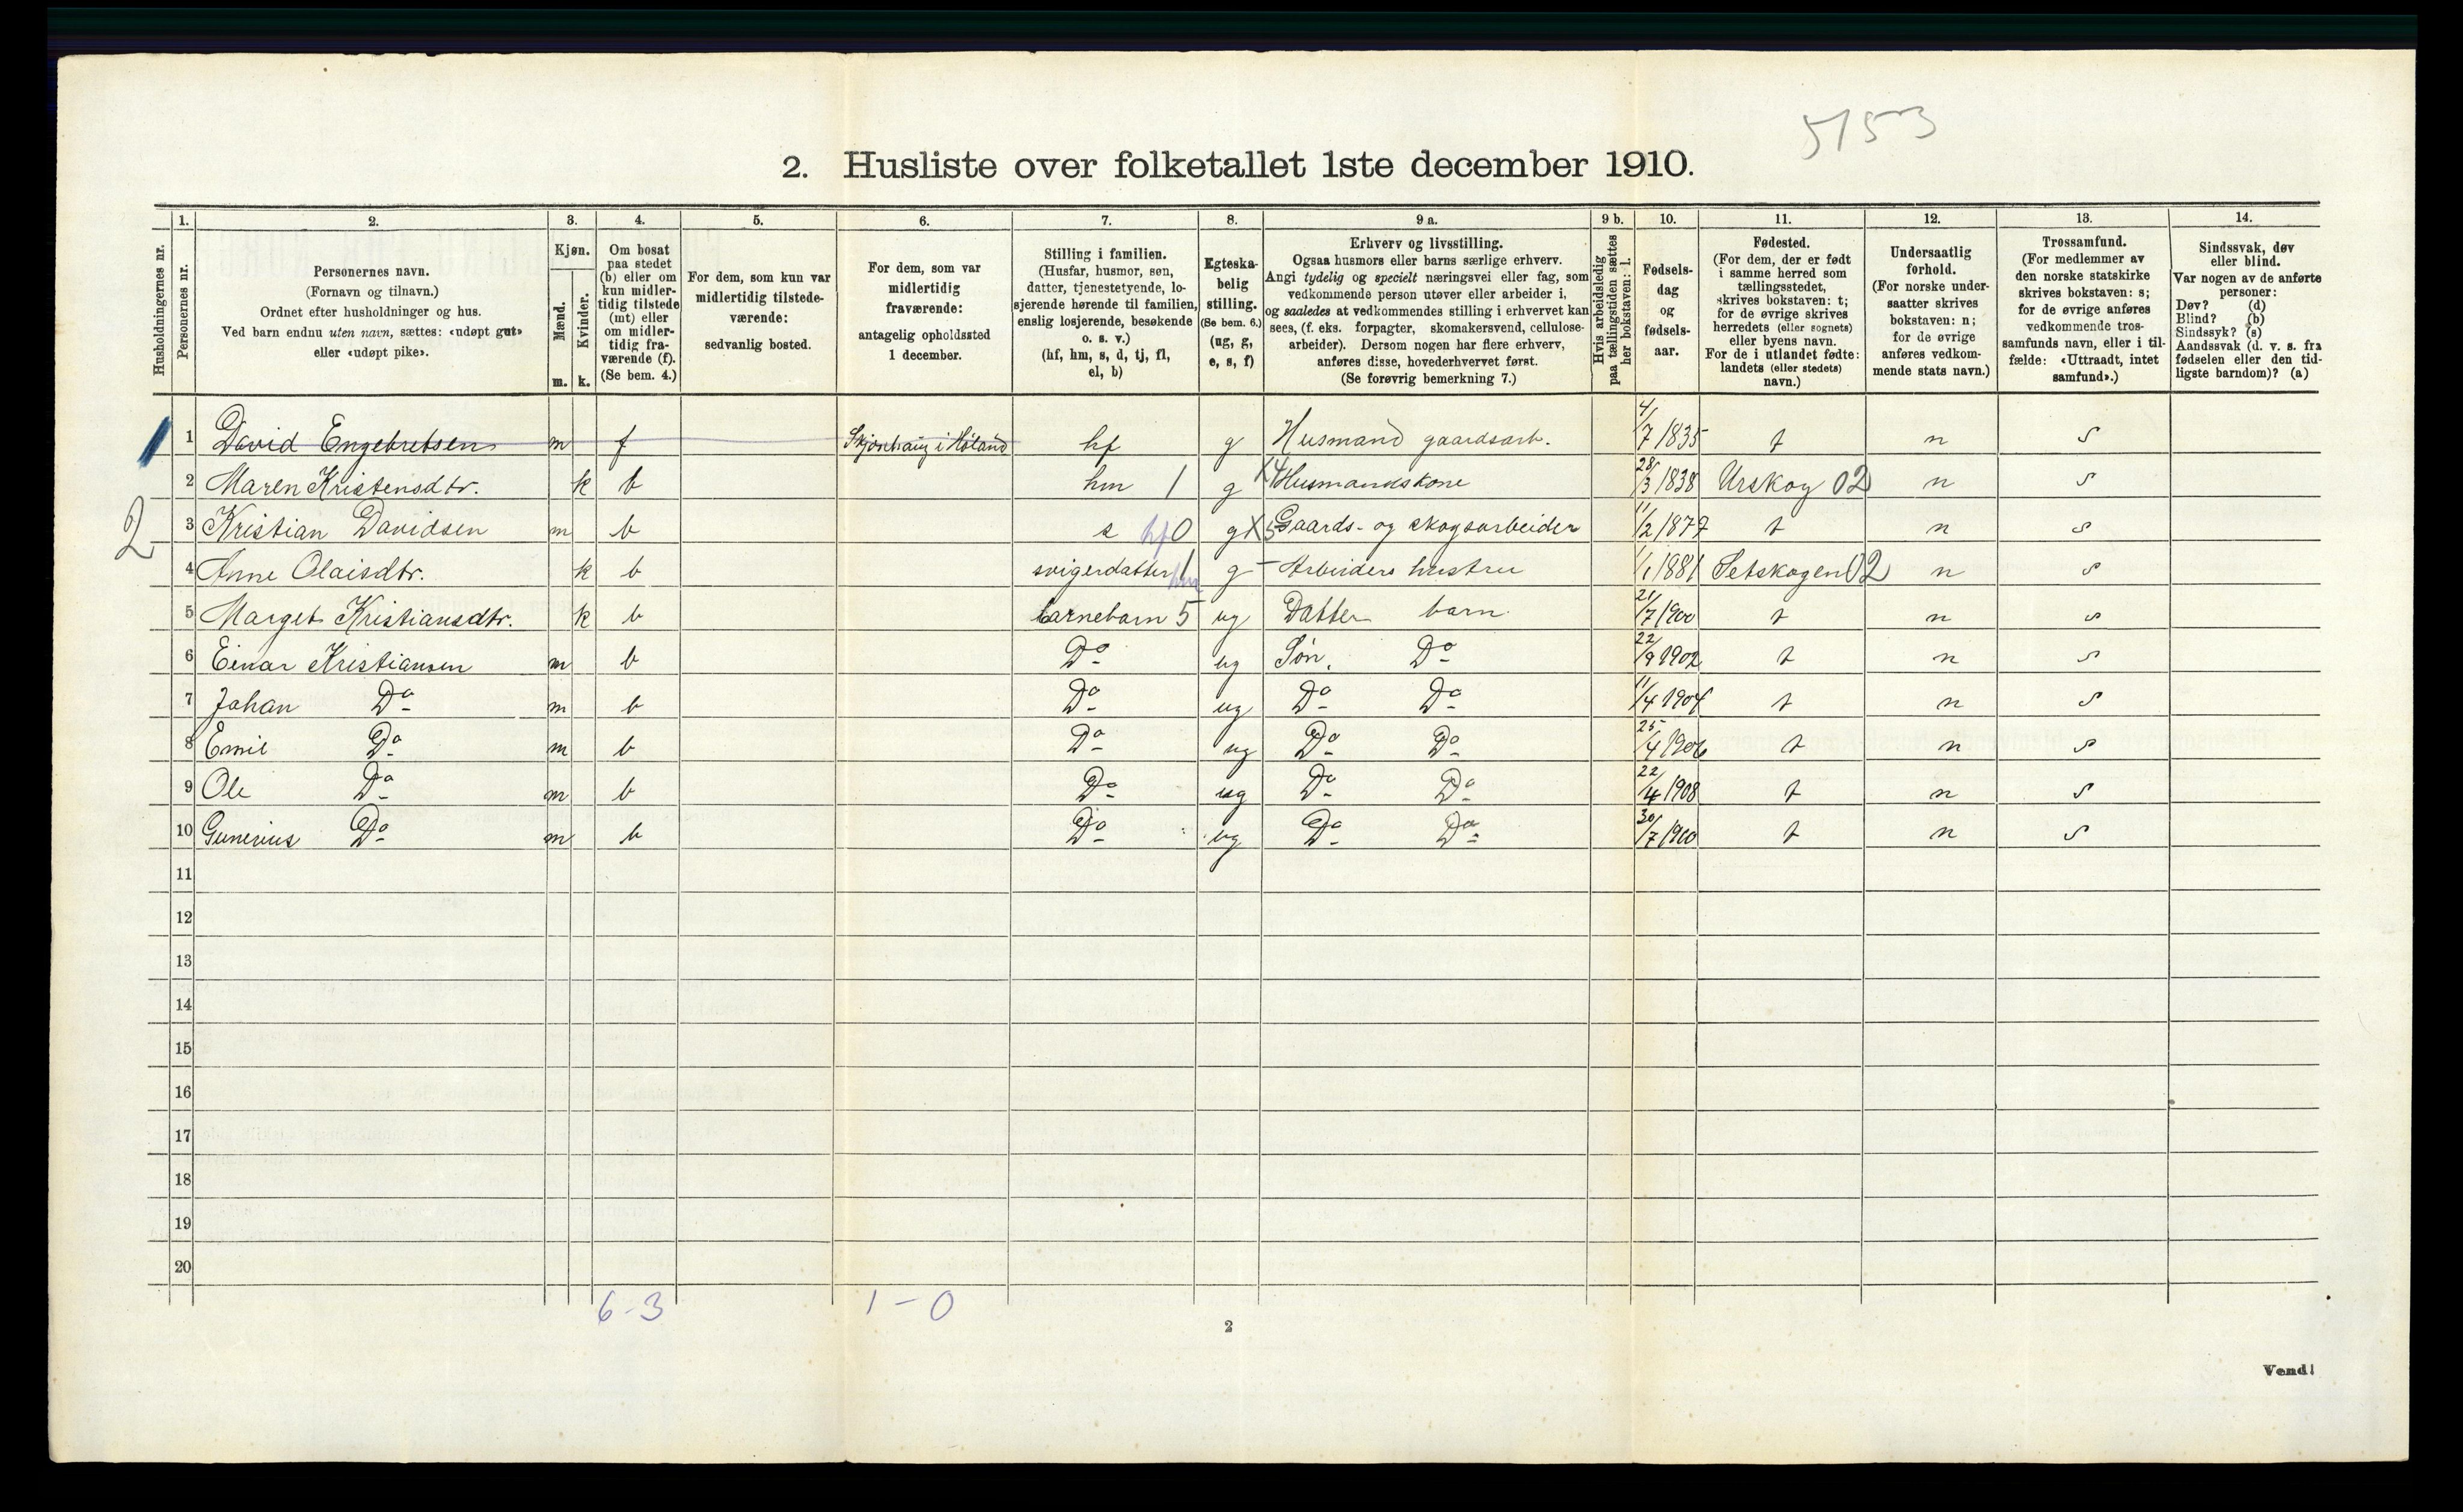 5153
2. Husliste over folketallet 1ste december 1910.
Husholdningernes nr.
1. Personernes nr.
2. Personernes navn.
(Fornavn og tilnavn.)
Ordnet efter husholdninger og hus.
Ved barn endnu uten navn, sættes: «udøpt gut»
eller «udøpt pike».
3. Kjøn.
Mænd. m.
Kvinder. k.
4. Om bosat
paa stedet
(b) eller om
kun midler-
tidig tilstede
(mt) eller
om midler-
tidig fra-
værende (f).
(Se bem. 4.)
5. For dem, som kun var
midlertidig tilstede-
værende:
sedvanlig bosted.
6. For dem, som var
midlertidig
fraværende:
antagelig opholdssted
1 december.
7. Stilling i familien.
(Husfar, husmor, søn,
datter, tjenestetyende, lo-
sjerende hørende til familien,
enslig losjerende, besøkende
o. s. v.)
(hf, hm, s, d, tj, fl,
el, b)
8. Egteska-
belig
stilling.
(Se bem. 6.)
(ug, g,
e, s, f)
9 a. Erhverv og livsstilling.
Ogsaa husmors eller barns særlige erhverv.
Angi tydelig og specielt næringsvei eller fag, som
vedkommende person utøver eller arbeider i,
og saaledes at vedkommendes stilling i erhvervet kan
sees, (f. eks. forpagter, skomakersvend, cellulose-
arbeider). Dersom nogen har flere erhverv,
anføres disse, hovederhvervet først.
(Se forøvrig bemerkning 7.)
9 b. Hvis arbeidsledig
paa tællingstiden sættes
her bokstaven: l.
10. Fødsels-
dag
og
fødsels-
aar.
11. Fødested.
(For dem, der er født
i samme herred som
tællingsstedet,
skrives bokstaven: t;
for de øvrige skrives
herredets (eller sognets)
eller byens navn.
For de i utlandet fødte:
landets (eller stedets)
navn.)
12. Undersaatlig
forhold.
(For norske under-
saatter skrives
bokstaven: n;
for de øvrige
anføres vedkom-
mende stats navn.)
13. Trossamfund.
(For medlemmer av
den norske statskirke
skrives bokstaven: s;
for de øvrige anføres
vedkommende tros-
samfunds navn, eller i til-
fælde: «Uttraadt, intet
samfund».)
14. Sindssvak, døv
eller blind.
Var nogen av de anførte
personer:
Døv? (d)
Blind? (b)
Sindssyk? (s)
Aandssvak (d. v. s. fra
fødselen eller den tid-
ligste barndom)? (a)
1 David Engebretsen m f Skjønhaug i Høland hf g Husmand gaardsarb. 4/7 1835 t n s
2 Maren Kristensdtr. k b hm 1 g X4 Husmandskone 28/3 1838 Urskog 02 n s
2 3 Kristian Davidsen m b s hf 0 g X5 Gaards- og skogsarbeider 11/2 1877 t n s
4 Anne Olaisdtr. k b svigerdatter hm 1 g - Arbeiders hustru 1/1 1881 Setskogen 02 n s
5 Margit Kristiansdtr. k b barnebarn 5 ug Datter barn 21/7 1900 t n s
6 Einar Kristiansen m b Do ug Søn, Do 22/9 1902 t n s
7 Johan Do m b Do ug Do Do 11/4 1904 t n s
8 Emil Do m b Do ug Do Do 25/4 1906 t n s
9 Ole Do m b Do ug Do Do 22/4 1908 t n s
10 Gunerius Do m b Do ug Do Do 30/7 1910 t n s
11
12
13
14
15
16
17
18
19
20
6-3 1-0
2
Vend!